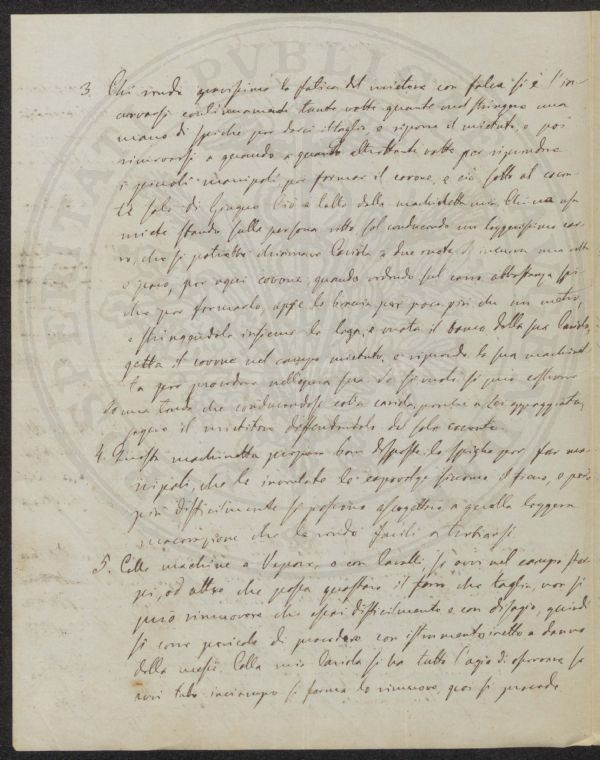 3. Chi rende gravissima la fatica del mietere con falce si è l'in-
curvarsi continuamente tante volte quante nel stringere una
mano di spiche per darci il taglio e riporre il mietuto, e poi
rincurvarsi a quando a quando altrettante volte per riprendere
i piccoli manipoli per formar il covone, e ciò sotto al cocen-
te sole di Giugno. Ciò è tolto dalla macchinetta mia. Chi ne usa
miete stando sulla persona ritto, sol conducendo un leggerissimo car-
ro, che si potrebbe chiamare Cariola a due ruote. S'incurva una volta
per ogni covone, quando vedendo sul carro abbastanza spi-
che per formarlo, apre le braccia per poco più che un metro,
e stringendole insieme le lega, e vuota il banco della sua Cariola
getta il covone nel campo mietuto, e riprende la sua macchinet-
ta per procedere nell'opera sua. Se si vuole si può estivare
una tenda che conducendosi colla cariola, perché a lei appoggiata,
segue il mietitore difendendolo dal sole cocente.
4. Questa macchinetta prepara ben disposte le spighe per far ma-
nipoli, che le inventate le capovolge siccome il fieno, e però
più difficilmente si possono assoggettare a quella leggera
macerazione che le rende facili a trebbiarsi.
5. Colle machine a Vapore, o con Cavalli se avvi nel campo ster-
pi, od altro che possa guastare il ferro che taglia, non si
può rimuovere che assai difficilmente e con disagio, quindi
si corre pericolo di procedere con istrumento inetto a danno
della messe. Colla mia Cariola si ha tutto l'agio di operare se
avvi tale inciampo si ferma lo rimuove, poi si procede